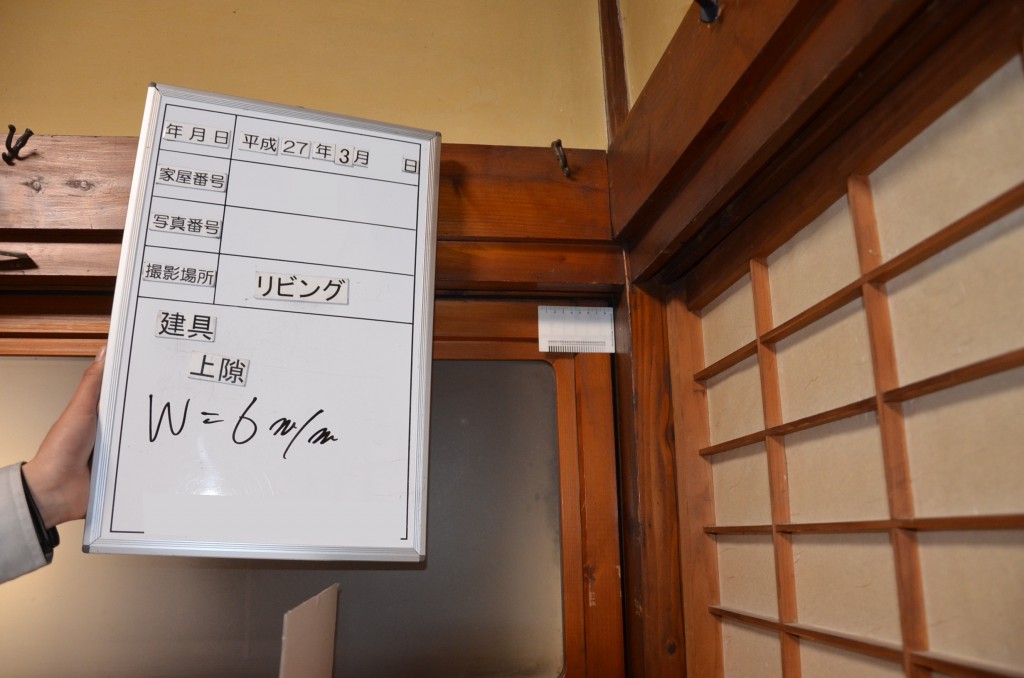 年月日 平成 27 年 3月 日
家屋番号
写真番号
撮影場所 リビング
建具
上隙
W=6 m/m